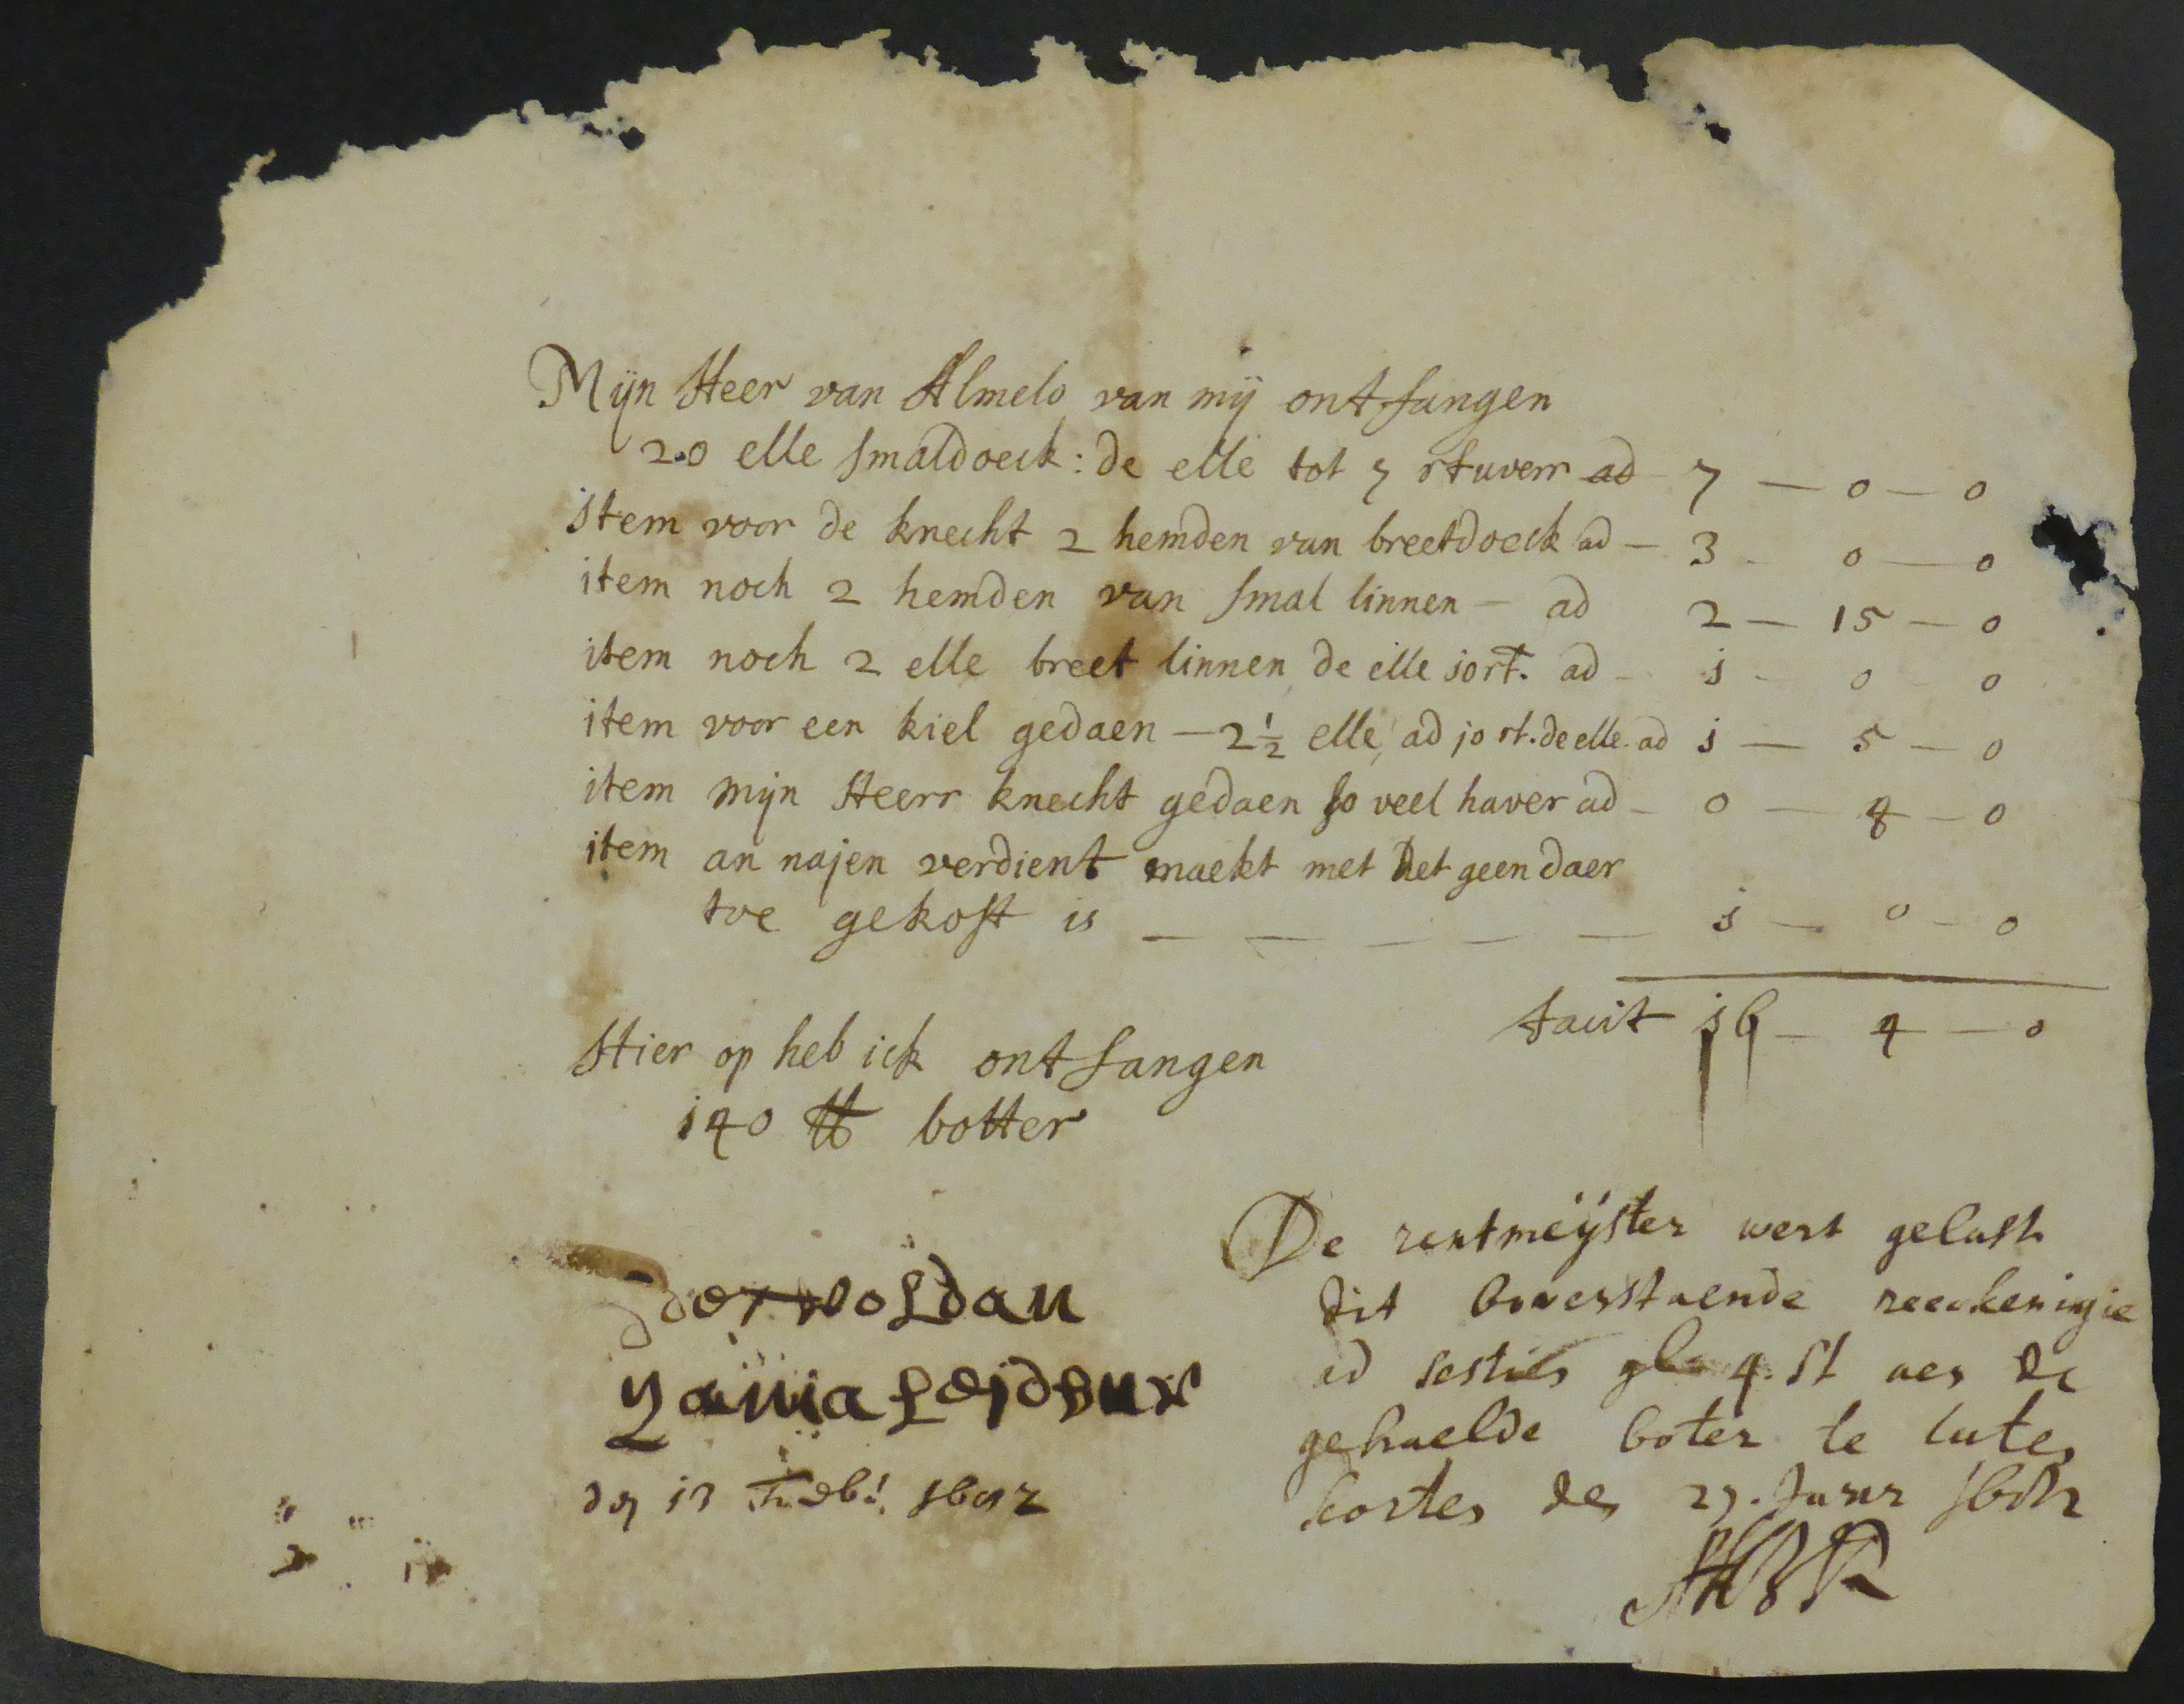 Mijn Heer van Almelo van mij ontfangen
20 elle smaldoeck: de elle tot 7 stuverr ad 7 — 0 — 0
item voor de knecht 2 hemden van breetdoeck ad — 3 — 0 — 0
item noch 2 hemden van smal linnen — ad 2 — 15 — 0
item noch 2 elle breet linnen de elle jo st. ad — j — 0 0
item voor een kiel gedaen — 2½ elle, ad jo st. de elle. ad j — 5 — 0
item mijn Heerr knecht gedaen so veel haver ad — 0 — 4 — 0
item an najen verdient maekt met het geen daer
toe gekost is — — — — — j — 0 — 0
facit j6 — 4 — 0
Hier op heb ick ontfangen
j40 ℔ botter
De rentmeijster wert gelast
dit bovenstaende reeckeningie
ad sestien gl 4. st aen de
gehaelde boter te laten
korten den